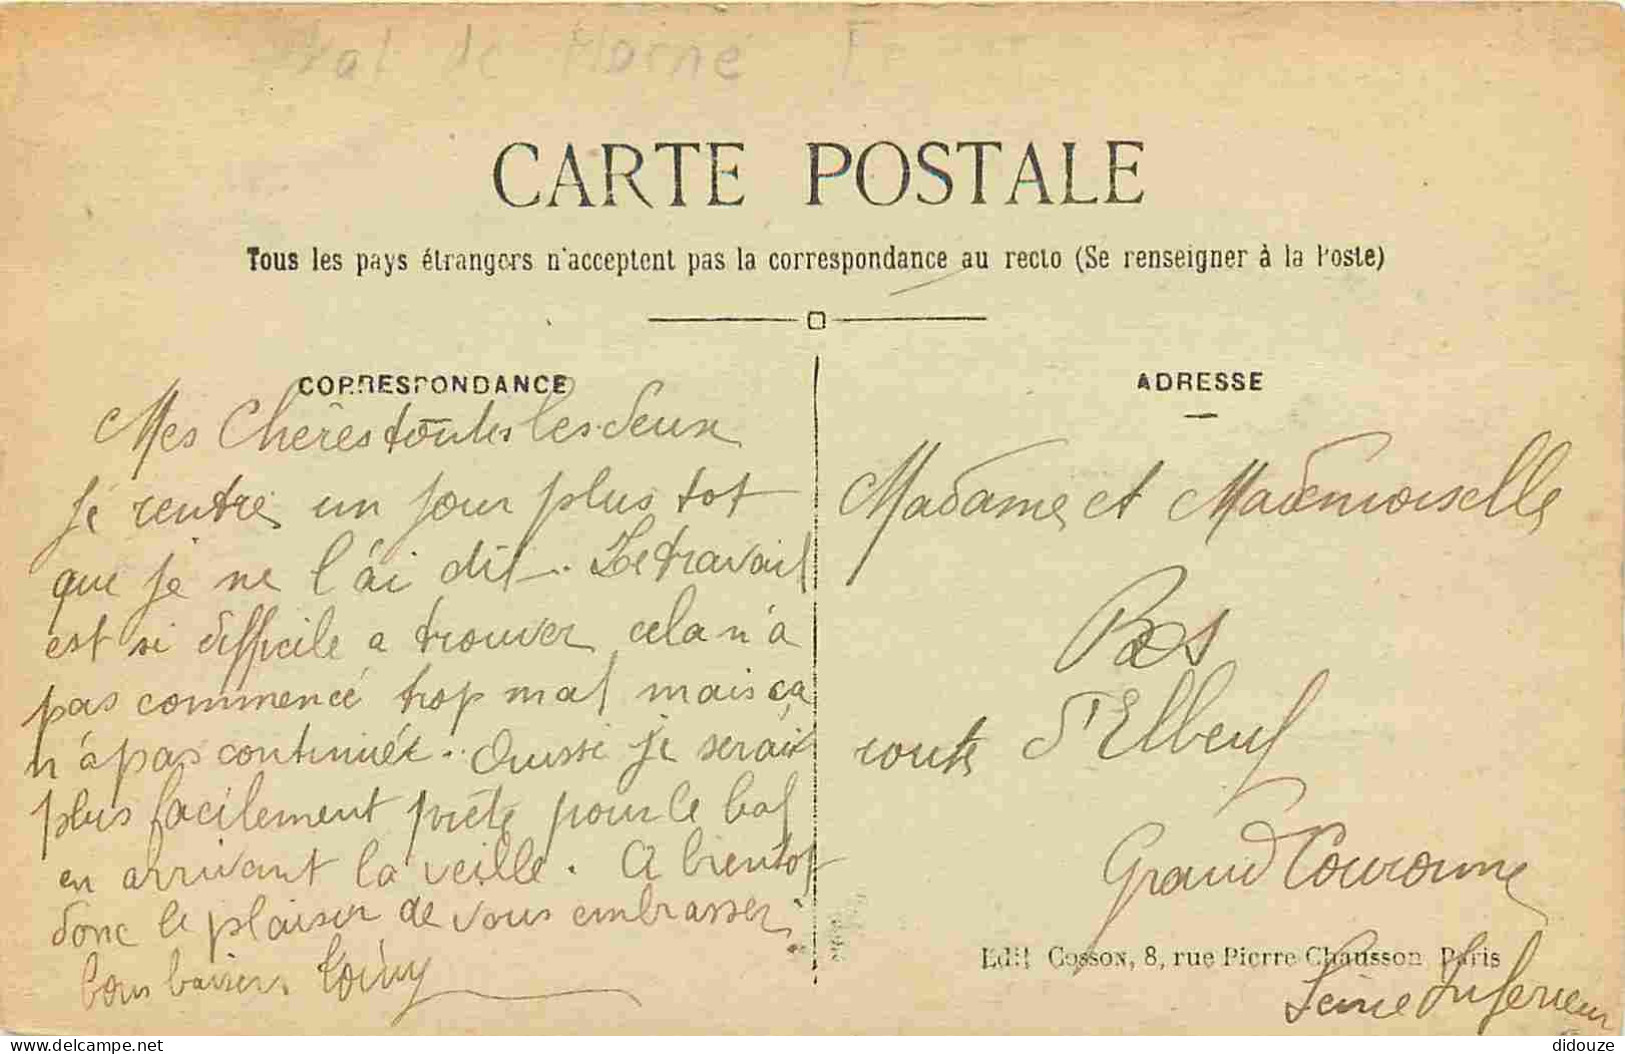 Val de Marne
CARTE POSTALE
Tous les pays étrangers n'acceptent pas la correspondance au recto (Se renseigner à la Poste)
CORRESPONDANCE
Mes Chères toutes les deux
je rentre un jour plus tot
que je ne l'ai dit. Le travail
est si difficile a trouver cela n'a
pas commencé trop mal mais ça
n'a pas continuer. Aussi je serais
plus facilement prête pour le bal
en arrivant la veille. A bientot
donc le plaisir de vous embrasser
bons baisers
ADRESSE
Madame et Mademoiselle
route d'Elbeuf
Grand Couronne
Seine Inferieur
Edit Cosson, 8, rue Pierre Chausson Paris
delcampe.net
didouze